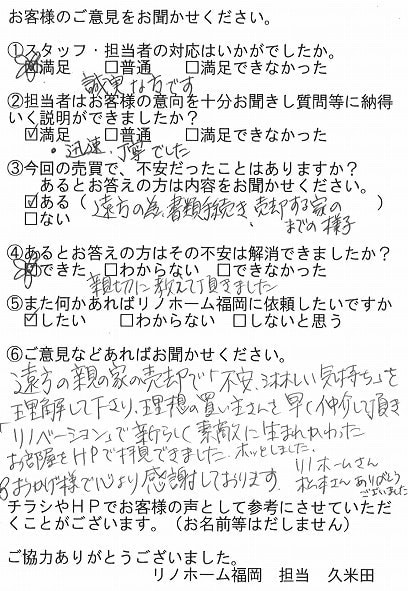 お客様のご意見をお聞かせください。
①スタッフ・担当者の対応はいかがでしたか。
☑満足 □普通 □満足できなかった
誠実な方です
②担当者はお客様の意向を十分お聞きし質問等に納得
いく説明ができましたか？
☑満足 □普通 □満足できなかった
・迅速・丁寧でした
③今回の売買で、不安だったことはありますか？
あるとお答えの方は内容をお聞かせください。
☑ある（遠方の為、書類手続き、売却する家の
までの様子）
□ない
④あるとお答えの方はその不安は解消できましたか？
☑できた □わからない □できなかった
親切に教えて頂きました
⑤また何かあればリノホーム福岡に依頼したいですか
☑したい □わからない □しないと思う
⑥ご意見などあればお聞かせください。
遠方の親の家の売却で「不安、淋しい気持ち」を
理解して下さり、理想の買い主さんを早く仲介して頂き
「リノベーション」で新らしく素敵に生まれかわった
お部屋をHPで拝見できました。ホッとしました。
おかげ様で心より感謝しております。
リノホームさん
松本さんありがとう
ございました
チラシやＨＰでお客様の声として参考にさせていただ
くことがございます。（お名前等はだしません）
ご協力ありがとうございました。
リノホーム福岡 担当 久米田